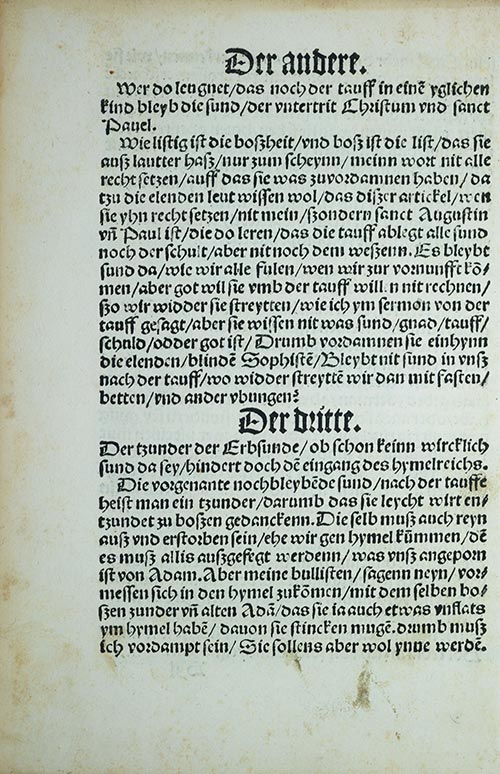 Der andere.
Wer do leugnet/das noch der tauff in einē yglichen
kind bleyb die sund/der vntertrit Christum vnd sanct
Pauel.
Wie listig ist die boßheit/vnd boß ist die list/das sie
auß lautter haß/nur zum scheynn/meinn wort nit alle
recht setzen/auff das sie was zuvordamnen haben/da
tzu die elenden leut wissen wol/das dißer artickel/wen
sie yhn recht setzen/nit mein/ßondern sanct Augustin
vñ Paul ist/die do leren/das die tauff ablegt alle sund
noch der schult/aber nit noch dem weßenn. Es bleybt
sund da/wie wir alle fulen/wen wir zur vornunfft kō-
men/aber got wil sie vmb der tauff willen nit rechnen/
ßo wir widder sie streytten/wie ich ym sermon von der
tauff gesagt/aber sie wissen nit was sund/gnad/tauff/
schuld/odder got ist/Drumb vordamnen sie einhynn
die elenden/blindē Sophistē/Bleybt nit sund in vnß
nach der tauff/wo widder streyttē wir dan mit fasten/
betten/vnd ander vbungen?
Der dritte.
Der tzunder der Erbsunde/ob schon keinn wircklich
sund da sey/hindert doch dē eingang des hymelreichs.
Die vorgenante nochbleybēde sund/nach der tauffe
heist man ein tzunder/darumb das sie leycht wirt en-
tzundet zu boßen gedanckenn. Die selb muß auch reyn
auß vnd erstorben sein/ehe wir gen hymel kūmmen/dē
es muß allis außgefegt werdenn/was vnß angeporn
ist von Adam. Aber meine bullisten/sagenn neyn/vor-
messen sich in den hymel zukōmen/mit dem selben bo-
ßen zunder vñ alten Adā/das sie ia auch etwas vnflats
ym hymel habē/dauon sie stincken mugē. drumb muß
ich vordampt sein/Sie sollens aber wol ynne werdē.